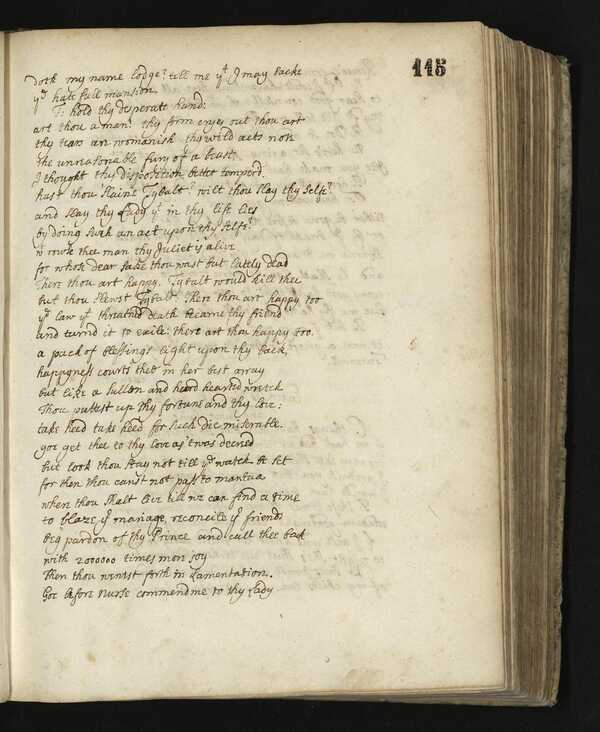 115
doth my name lodge? tell me yt I may sacke
ye hatefull mansion.
F: hold thy desperate hand:
art thou a man? thy form cryes out thou art
thy tears are womanish thy wild acts note
the unreasonable fury of a beast.
I thought thy disposition better temperd.
hast thou slaine Tybalt? wilt thou slay thy selfe?
and slay thy Lady yt in thy life lies
by doing such an act upon thy selfe?
rowse thee man thy Juliet is alive
for whose dear sake thou wast but lately dead
There thou art happy. Tybalt would kill thee
but thou slewst Tybalt. there thou art happy too
ye law yt threatned death became thy friend
and turnd it to exile: there art thou happy too.
a pack of blessings light upon thy back,
happyness courts thee in her best array
but like a sullen and heard hearted wretch
Thou puttest up thy fortune and thy love:
take heed take heed for such die miserable.
goe get thee to thy love as twas decreed
but look thou stay not till ye watch be set
for then thou canst not pass to mantua
when thou shalt live till we can find a time
to blaze yr mariage, reconcile yr friends
beg pardon of thy Prince and call thee back
with 2000000 times more joy
Then thou wentst forth in Lamentation.
Goe before Nurse commend me to thy Lady